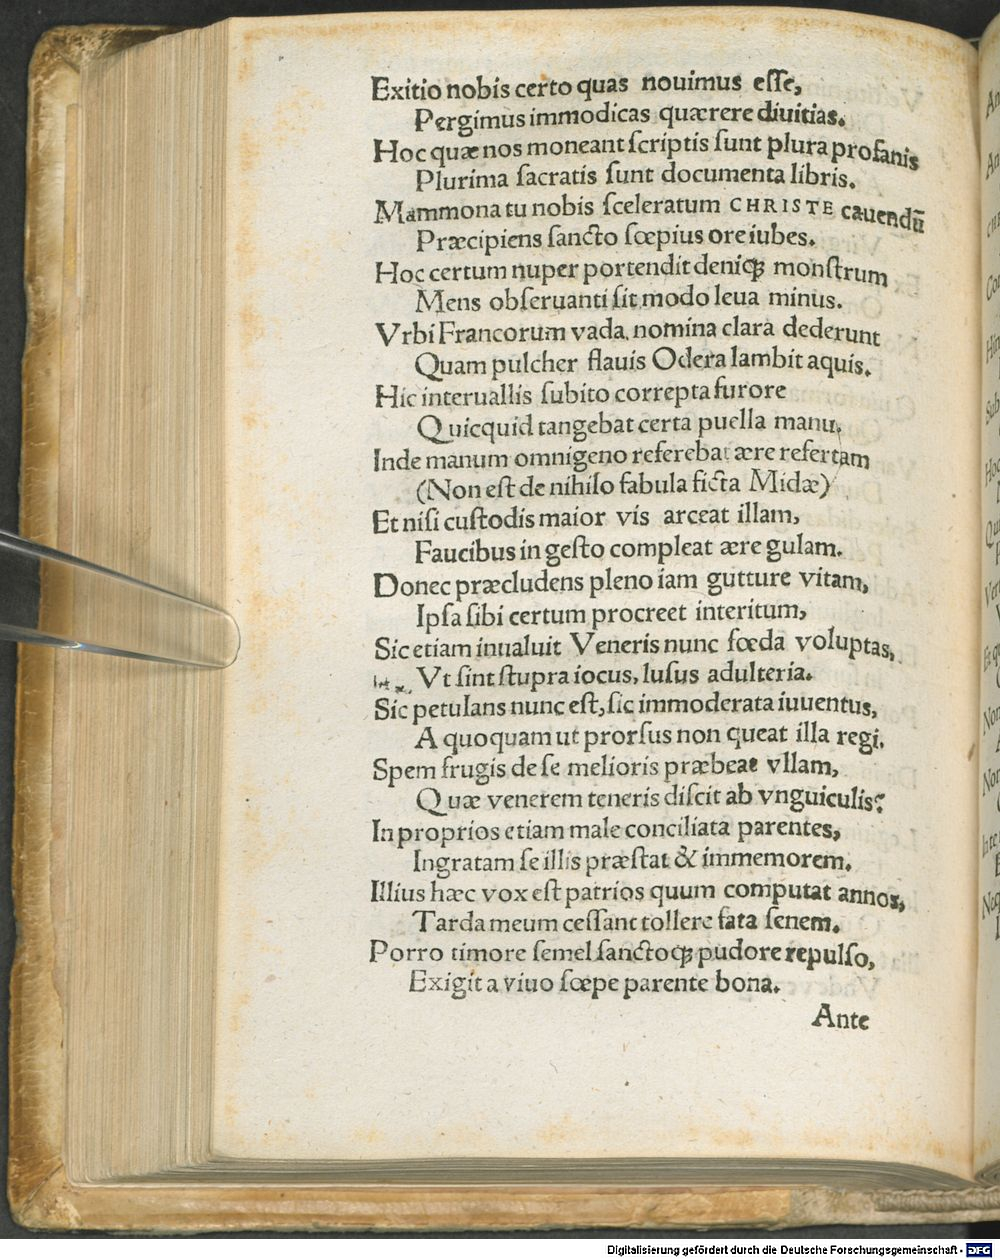 Exitio nobis certo quas nouimus eſſe,
Pergimus immodicas quærere diuitias.
Hoc quæ nos moneant ſcriptis ſunt plura profanis
Plurima ſacratis ſunt documenta libris.
Mammona tu nobis ſceleratum CHRISTE cauendū
Præcipiens ſancto ſœpius ore iubes.
Hoc certum nuper portendit deniqꝫ monſtrum
Mens obſeruanti ſit modo leua minus.
Vrbi Francorum vada, nomina clara dederunt
Quam pulcher flauis Odera lambit aquis.
Hic interuallis ſubito correpta furore
Quicquid tangebat certa puella manu,
Inde manum omnigeno referebat ære refertam
(Non eſt de nihilo fabula ficta Midæ)
Et niſi cuſtodis maior vis arceat illam,
Faucibus in geſto compleat ære gulam.
Donec præcludens pleno iam gutture vitam,
Ipſa ſibi certum procreet interitum,
Sic etiam inualuit Veneris nunc fœda voluptas,
Vt ſint ſtupra iocus, luſus adulteria.
Sic petulans nunc eſt, ſic immoderata iuuentus,
A quoquam ut prorſus non queat illa regi.
Spem frugis de ſe melioris præbeat vllam,
Quæ venerem teneris diſcit ab vnguiculis?
In proprios etiam male conciliata parentes,
Ingratam ſe illis præſtat & immemorem.
Illius hæc vox eſt patrios quum computat annos,
Tarda meum ceſſant tollere fata ſenem.
Porro timore ſemel ſanctoqꝫ pudore repulſo,
Exigit a viuo ſœpe parente bona.
Ante
Digitalisierung gefördert durch die Deutsche Forschungsgemeinschaft - DFG